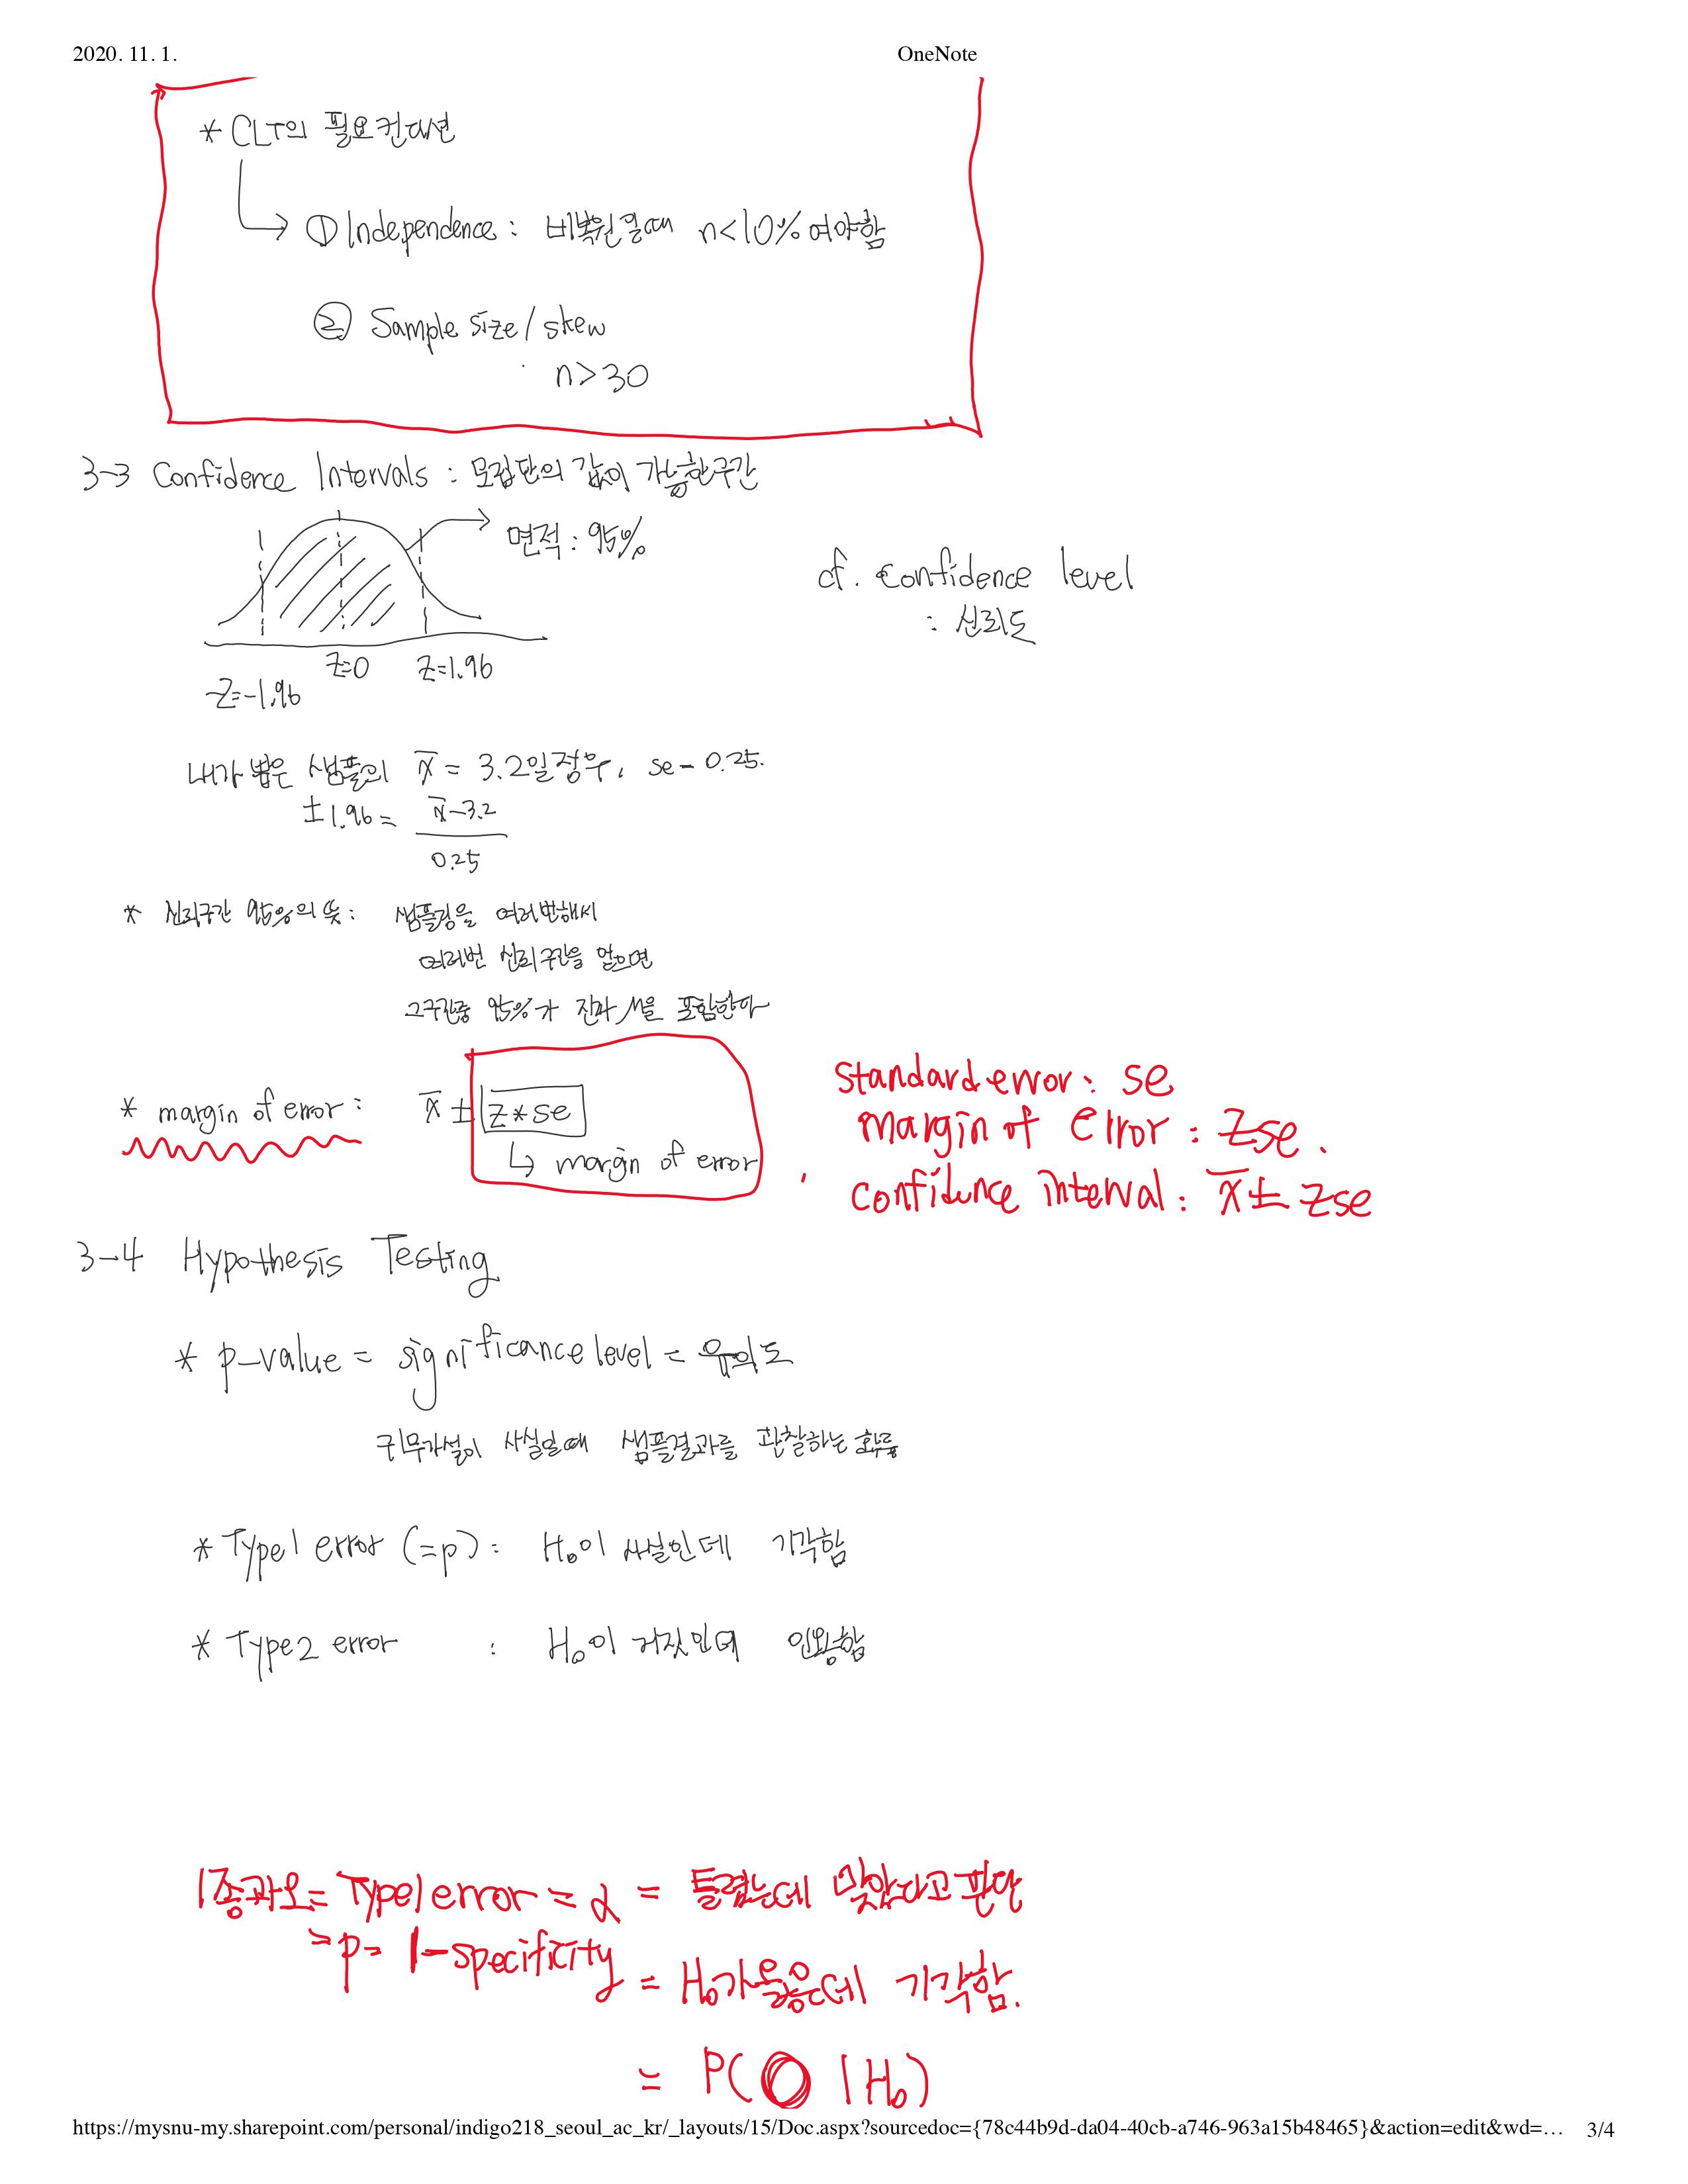 2020. 11. 1.
OneNote
* CLT의 필요컨디션
① Independence : 비복원일때 n<10%여야함
② Sample size / skew
n>30
3-3 Confidence Intervals : 모집단의 값이 가능한구간
면적 : 95%
cf. confidence level
: 신뢰도
z=0
z=1.96
z=-1.96
내가 뽑은 샘플의 x̄ = 3.2일경우, se = 0.25.
±1.96 = x̄-3.2
0.25
* 신뢰구간 95%의 뜻 : 샘플링을 여러번해서
여러번 신뢰구간을 얻으면
그구간중 95%가 진짜 μ을 포함한다
* margin of error : x̄ ± z*se
↳ margin of error
standard error : se
margin of error : zse.
confidence interval : x̄ ± zse
3-4 Hypothesis Testing
* p-value = significance level = 유의도
귀무가설이 사실일때 샘플결과를 관찰하는 확률
* Type1 error (=p) : H₀이 사실인데 기각함
* Type2 error : H₀이 거짓인데 인용함
1종과오 = Type1 error = α = 틀렸는데 맞았다고 판단
= p = 1-specificity
= H₀가 옳은데 기각함.
= P( | H₀)
https://mysnu-my.sharepoint.com/personal/indigo218_seoul_ac_kr/_layouts/15/Doc.aspx?sourcedoc={78c44b9d-da04-40cb-a746-963a15b48465}&action=edit&wd=…
3/4